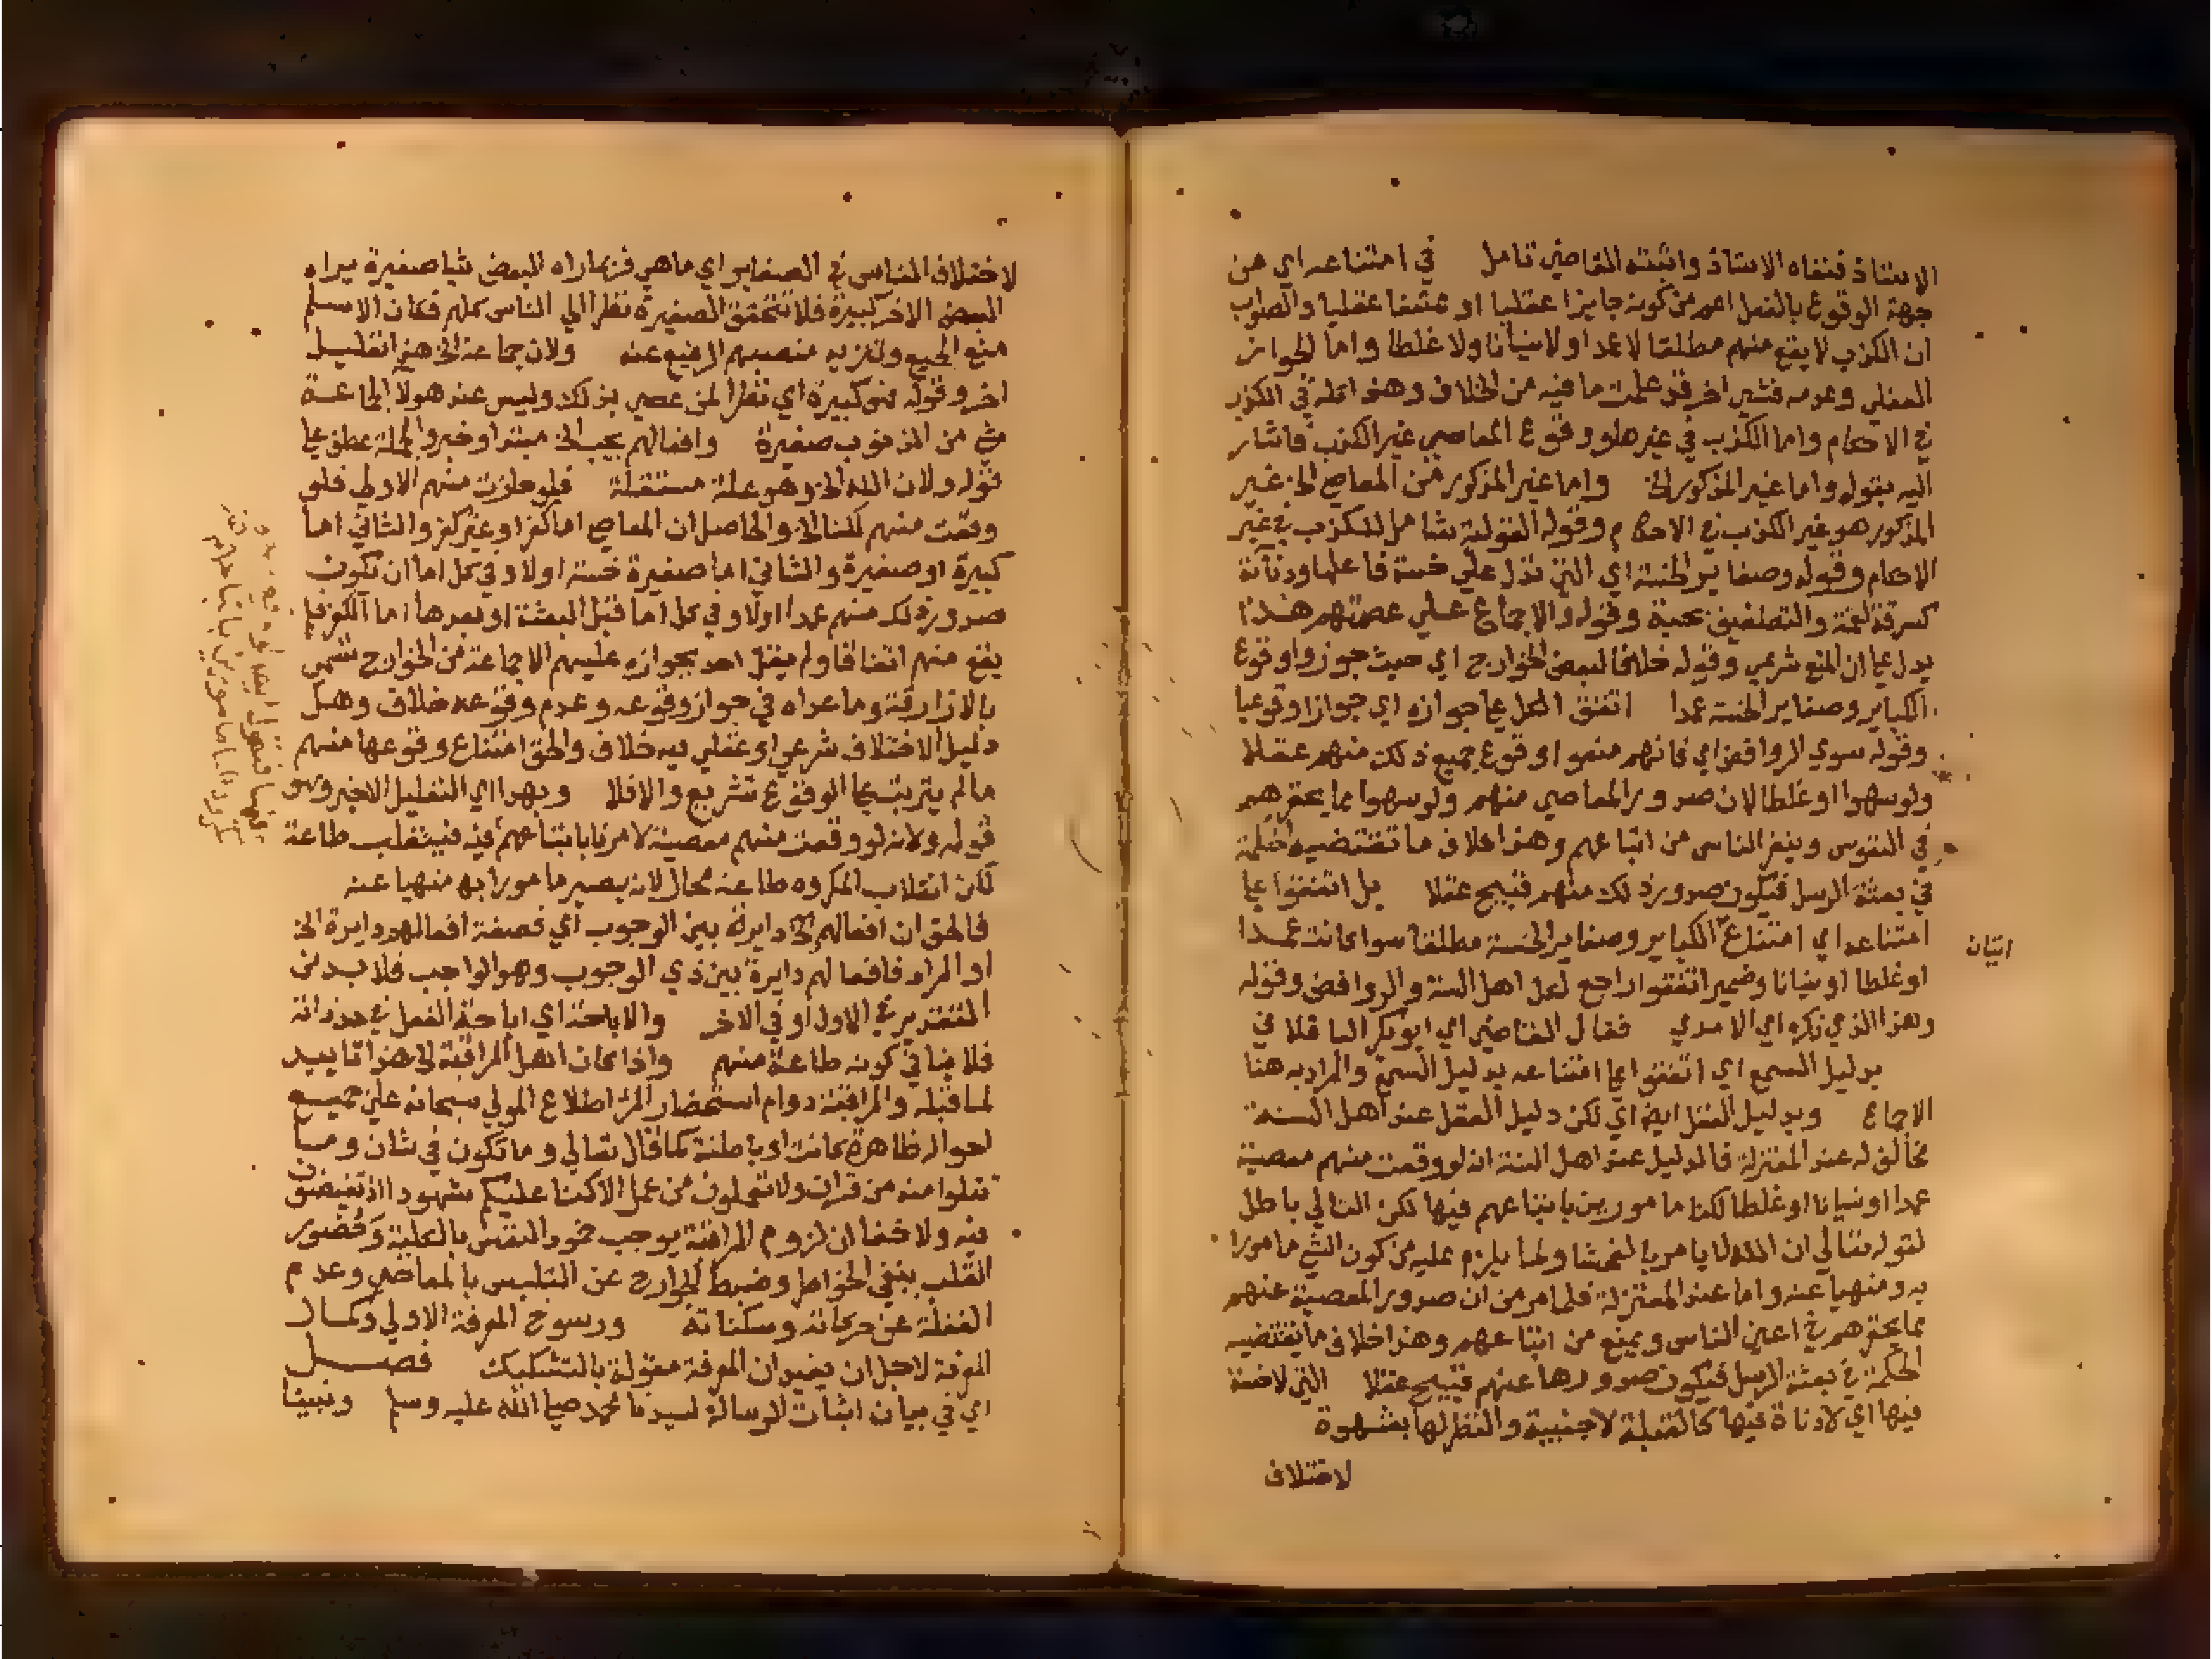 الاستاذ فنفاه الاستاذ واثبته القاضي تامل في امتناعه اي من
جهة الوقوع بالفعل اعم من كونه جايزا عقليا او ممتنعا عقليا والصواب
ان الكذب لا يقع منهم مطلقا لا عمدا ولا نسيانا ولا غلطا واما الجواز
العقلي وعدمه فشي اخر قد علمت ما فيه من الخلاف وهذا كله في الكذب
في الاحكام واما الكذب في غيرها ووقوع المعاصي غير الكذب فاشار
اليه بقوله واما غير المذكور الخ واما غير المذكور من المعاصي الخ غير
المذكور هو غير الكذب في الاحكام وقوله القولية شامل للكذب في غير
الاحكام وقوله وصغاير الخسة اي التي تدل علي خسة فاعلها ودنائة
كسرقة لقمة والتطفيف بحبة وقوله والاجماع علي عصمتهم هذا
يدل علي ان المنع شرعي وقوله خلافا لبعض الخوارج اي حيث جوزوا وقوع
الكباير وصغاير الخسة عمدا اتفق الكل علي جوازه اي جوازا وقوعيا
وقوله سوي الروافض اي فانهم منعوا وقوع جميع ذلك منهم عقلا
ولو سهوا او غلطا لان صدور المعاصي منهم ولو سهوا مما يحقرهم
في النفوس وينفر الناس من اتباعهم وهذا خلاف ما تقتضيه الحكمة
في بعثة الرسل فيكون صدور ذلك منهم قبيح عقلا بل اتفقوا علي
امتناعه اي امتناع الكباير وصغاير الخسة مطلقا سوا كانت عمدا
اتيان
او غلطا او نسيانا وضمير اتفقوا راجع لعل اهل السنة والروافض وقوله
وهذا الذي ذكره اي الامدي فقال القاضي اي ابو بكر الباقلاني
بدليل السمع اي اتفقوا علي امتناعه بدليل السمع والمراد به هنا
الاجماع وبدليل العقل ايضا اي لكن دليل العقل عند اهل السنة
مخالف له عند المعتزلة فالدليل عند اهل السنة انه لو وقعت منهم معصية
عمدا او نسيانا او غلطا لكنا مامورين باتباعهم فيها لكن التالي باطل
لقوله تعالي ان الله لا يامر بالفحشا ولما يلزم عليه من كون الشي مامورا
به ومنهيا عنه واما عند المعتزلة فلما مر من ان صدور المعصية عنهم
مما يحقرهم في اعين الناس ويمنع من اتباعهم وهذا خلاف ما يقتضيه
الحكمة في بعثة الرسل فيكون صدورها عنهم قبيح عقلا التي لا خسة
فيها اي لا دناة فيها كالقبلة لاجنبية والنظر لها بشهوة
لاختلاف
لاختلاف الناس في الصغاير اي ما هي فربما راه البعض شيا صغيرة يراه
البعض الاخر كبيرة فلا تتحقق الصغيرة نظرا الي الناس كلهم فكان الاسلم
منع الجميع وتنزيه منصبهم الرفيع عنه ولان جماعة الخ هذا تعليل
اخر وقوله فهو كبيرة اي نظرا لمن عصي بذلك وليس عند هولا الجماعة
شي من الذنوب صغيرة وافعالهم يجب الخ مبتدا وخبر والجملة عطف علي
قوله ولان الله الخ وهو علة مستقلة فلو جازت منهم الاولي فلو
وقعت منهم لكنا الخ والحاصل ان المعاصي اما كفر او غير كفر والثاني اما
كبيرة او صغيرة والثاني اما صغيرة خسة او لا وفي كل اما ان يكون
صدور ذلك منهم عمدا او لا وفي كل اما قبل البعثة او بعدها اما الكفر فلم
يقع منهم اتفاقا ولم يقل احد بجوازه عليهم الا جماعة من الخوارج تسمي
بالازارقة وما عداه في جواز وقوعه وعدم وقوعه خلاف وهل
دليل الاختلاف شرعي او عقلي فيه خلاف والحق امتناع وقوعها منهم
ما لم يترتب علي الوقوع تشريع والا فلا وبهذا اي التعليل الاخير وهو
قوله ولانه لو وقعت منهم معصية لامرنا باتباعهم فيه فينقلب طاعة
لكن انقلاب المكروه طاعة محال لانه يصير مامورا به منهيا عنه
فالحق ان افعالهم الخ دايرة بين الوجوب اي فصفة افعالهم دايرة الخ
او المراد فافعالهم دايرة بين ذي الوجوب وهو الواجب فلا بد من
التقدير في الاول او في الاخر والاباحة اي اباحة الفعل في حد ذاته
فلا ينافي كونه طاعة منهم واذا كان اهل المراقبة الخ هذا تاييد
لما قبله والمراقبة دوام استحضار المرء اطلاع المولي سبحانه علي جميع
احواله ظاهرة كانت او باطنة كما قال تعالي وما تكون في شان وما
تتلوا منه من قران ولا تعملون من عمل الا كنا عليكم شهودا اذ تفيضون
فيه ولا خفا ان لزوم المراقبة يوجب خمود النفس بالكلية وحضور
القلب بنفي الخواطر وضبط الجوارح عن التلبس بالمعاصي وعدم
الغفلة عن حركاته وسكناته ورسوخ المعرفة الاولي وكمال
المعرفة لاجل ان يفيد ان المعرفة مقولة بالتشكيك فصل
اي في بيان اثبات الرسالة لسيدنا محمد صلي الله عليه وسلم ونبينا